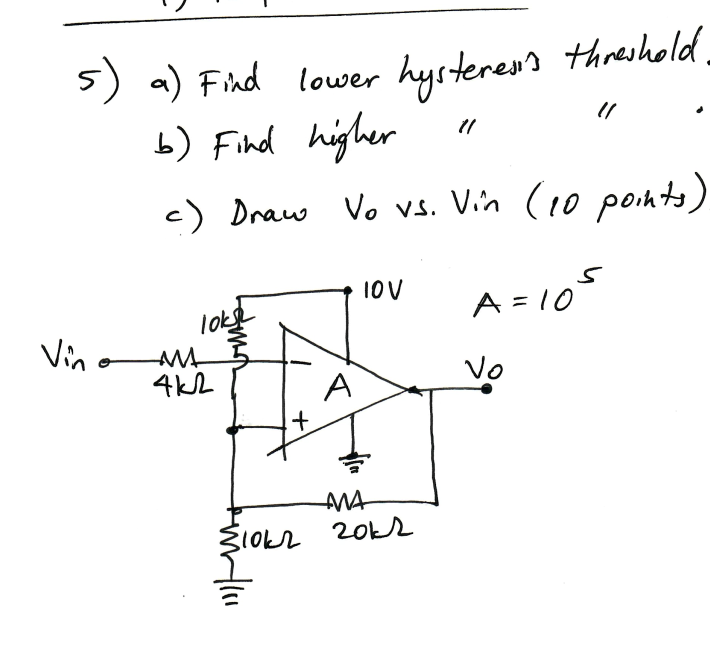 5) a) Find lower hysteresis threshold.
b) Find higher " " .
c) Draw Vo vs. Vin (10 points)
10V
A = 10^5
10kΩ
Vin
4kΩ
−
A
Vo
+
20kΩ
10kΩ